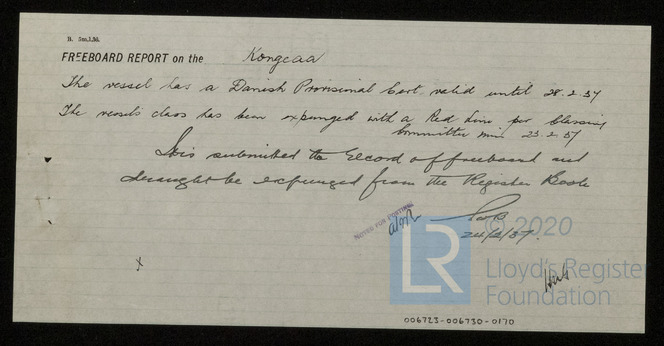 R. 5m,1,36.
FREEBOARD REPORT on the Kongeaa
The vessel has a Danish Provisional Cert. valid until 28.2.37
The vessels class has been expunged with a Red Line per Classing
Committee min 23.2.37
It is submitted the record of freeboard and
draught be expunged from the Register Book
NOTED FOR POSTING
24/2/37.
© 2020
LR
Lloyd's Register
Foundation
006723-006730-0170